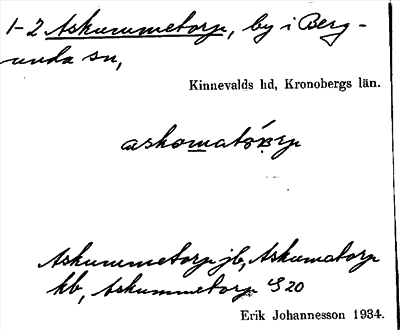 1-2 Askummetorp, by i Berg-
unda sn,
Kinnevalds hd, Kronobergs län.
askomatórp
Askummetorp jb, Askumatorp
kb, Askummetorp S 20
Erik Johannesson 1934.